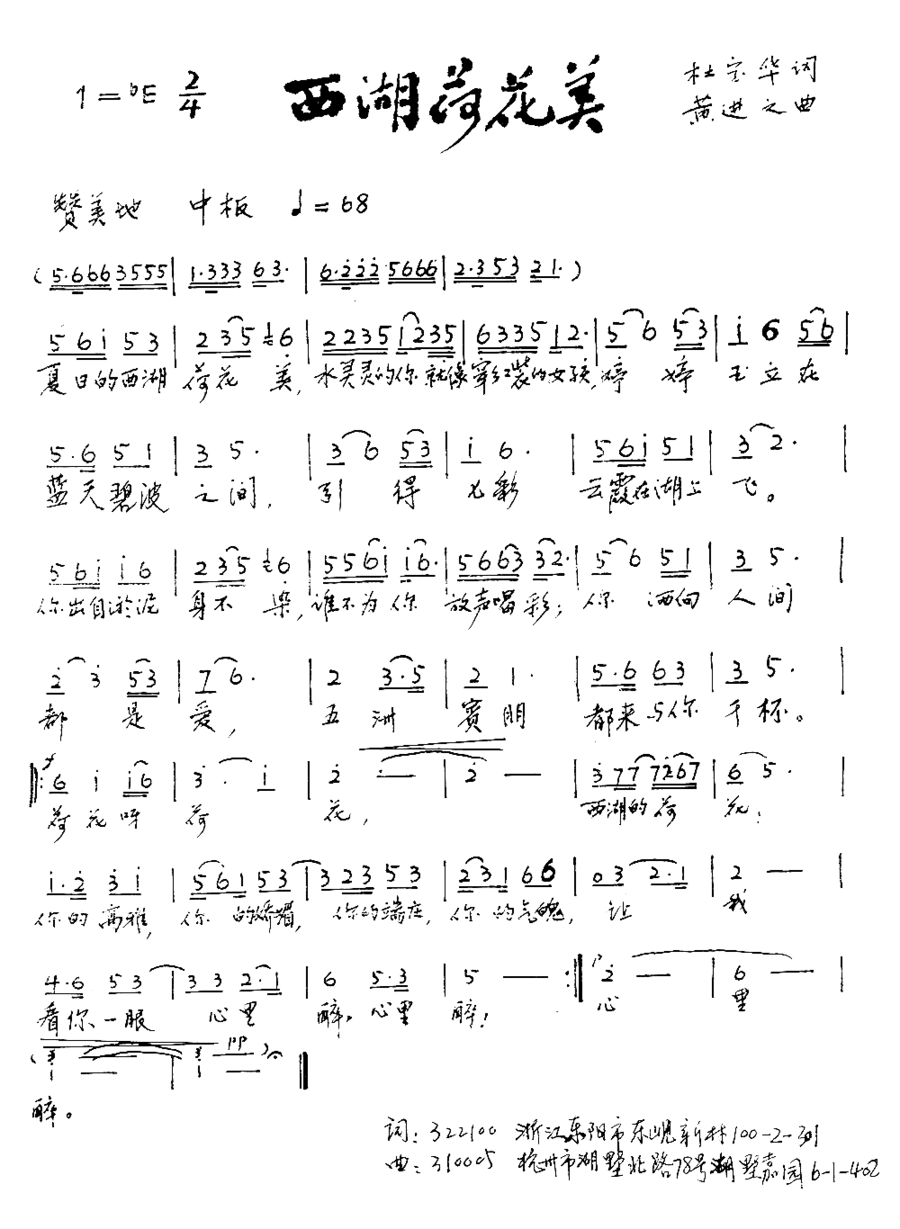 1=♭E 2/4 西湖荷花美 杜宝华词
黄进之曲
赞美地 中板 ♩=68
(5·666 3555 | 1·333 63· | 6·222 5666 | 2·353 21·)
561 53 | 235 6 | 2235 1235 | 6335 12· | 56 53 | 1 6 56 |
夏日的西湖 荷花 美,水灵灵的你就像穿红装的女孩,婷 婷 玉立在
5·6 51 | 3 5· | 36 53 | 1 6· | 561 51 | 3 2· |
蓝天碧波 之间, 引 得 七彩 云霞在湖上 飞。
561 16 | 235 6 | 5561 16· | 5663 32· | 56 51 | 3 5· |
你出自淤泥 身不 染,谁不为你 放声唱彩; 你 洒向 人间
2 3 53 | 7 6· | 2 3·5 | 2 1· | 5·6 63 | 3 5· |
都 是 爱, 五 洲 宾朋 都来与你 干杯。
f
‖: 6 1 16 | 3· 1 | 2 — | 2 — | 377 7267 | 6 5· |
荷花呀 荷 花, 西湖的荷 花;
1·2 31 | 561 53 | 323 53 | 231 66 | 03 2·1 | 2 — |
你的 高雅, 你 的娇媚, 你的端庄, 你 的气魄, 让 我
4·6 53 | 33 2·1 | 6 5·3 | 5 — :‖ p 2 — | 6 — |
看你一眼 心里 醉。心里 醉! 心 里
pp
1 — | 1 — ‖
醉。
词: 322100 浙江东阳市东岘新村100-2-301
曲: 310005 杭州市湖墅北路78号湖墅嘉园6-1-402